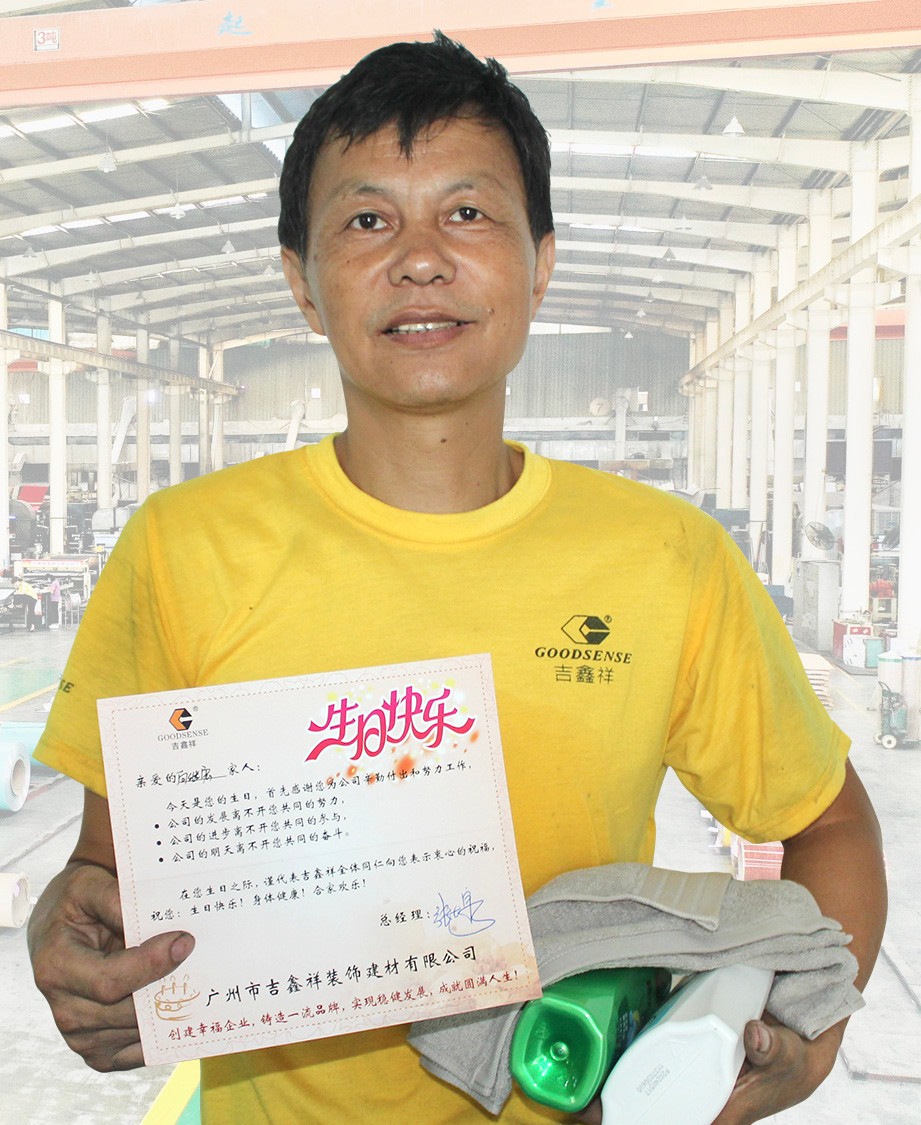 3吨
起
GOODSENSE
吉鑫祥
SE
GOODSENSE
吉鑫祥
生日快乐
亲爱的 家人：
今天是您的生日，首先感谢您为公司辛勤付出和努力工作，
• 公司的发展离不开您共同的努力，
• 公司的进步离不开您共同的参与，
• 公司的明天离不开您共同的奋斗。
在您生日之际，谨代表吉鑫祥全体同仁向您表示衷心的祝福，
祝您：生日快乐！身体健康！合家欢乐！
总经理：
广州市吉鑫祥装饰建材有限公司
创建幸福企业，铸造一流品牌，实现稳健发展，成就圆满人生！